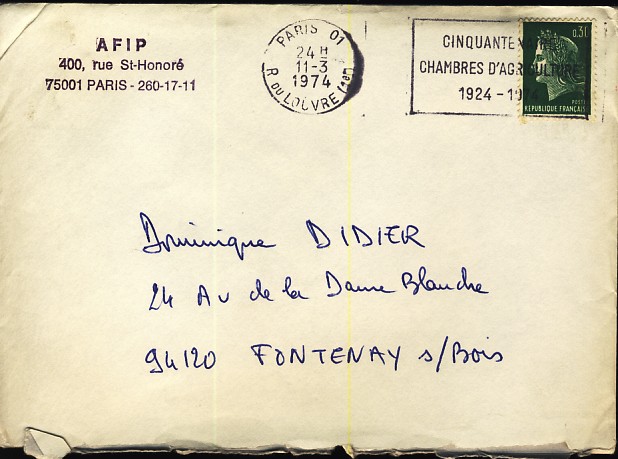 AFIP
400, rue St-Honoré
75001 PARIS - 260-17-11
PARIS 01
24 H
11-3
1974
R. DU LOUVRE (1er)
CHAMBRES D'AGRICULTURE
1924 - 
0,30
POSTES
REPUBLIQUE FRANÇAISE
Dominique DIDIER
24 Av de la Dame Blanche
94120 FONTENAY s/Bois